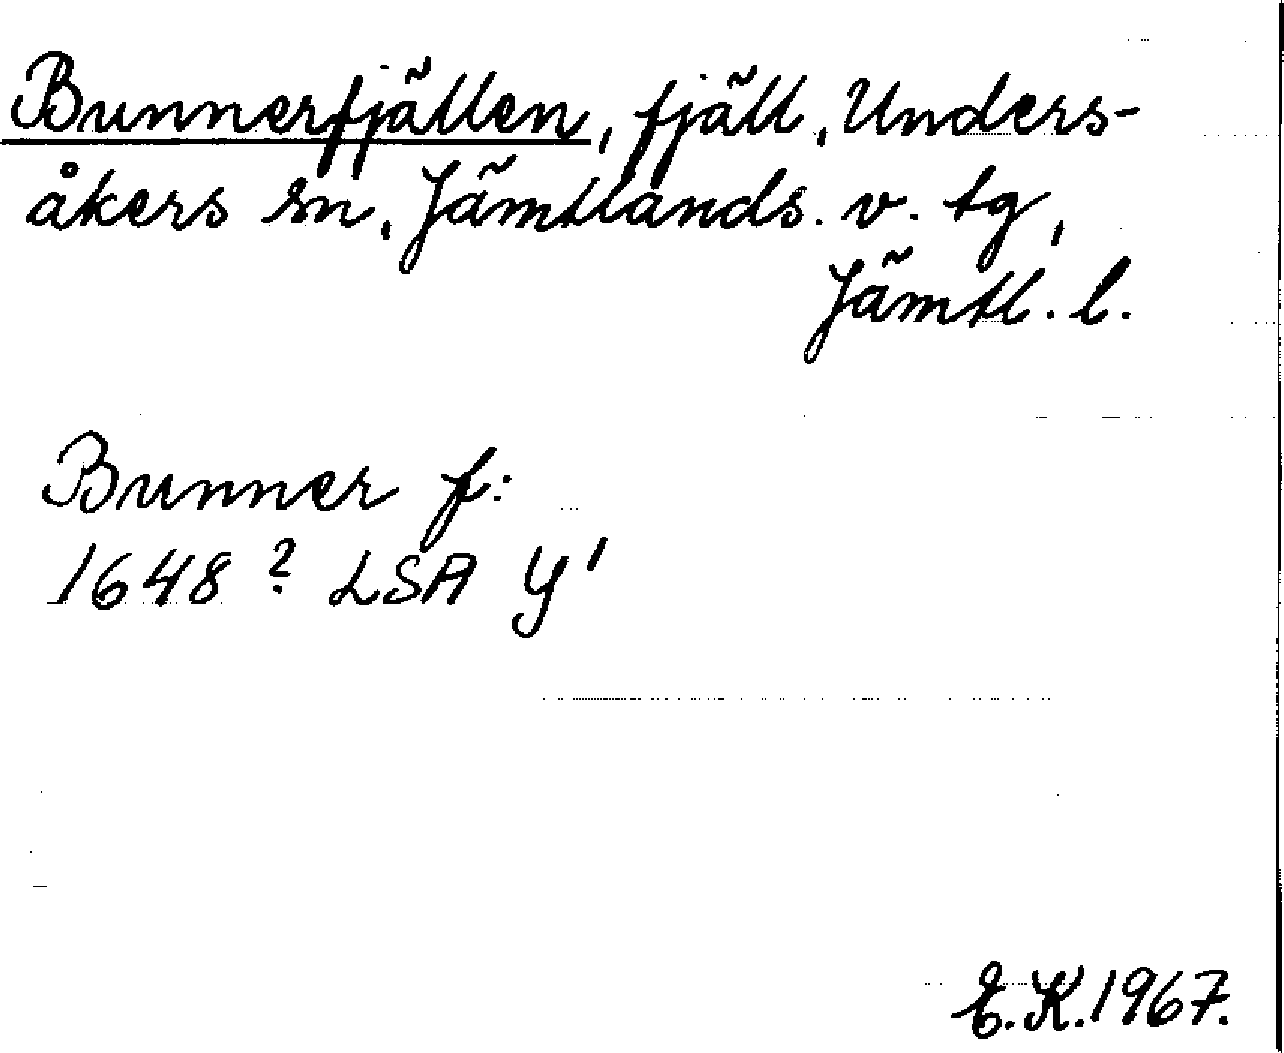 Bunnerfjällen, fjäll, Unders-
åkers sn, Jämtlands. v. tg,
Jämtl. l.
Bunner f:
1648? LSA Y'
E.K.1967.